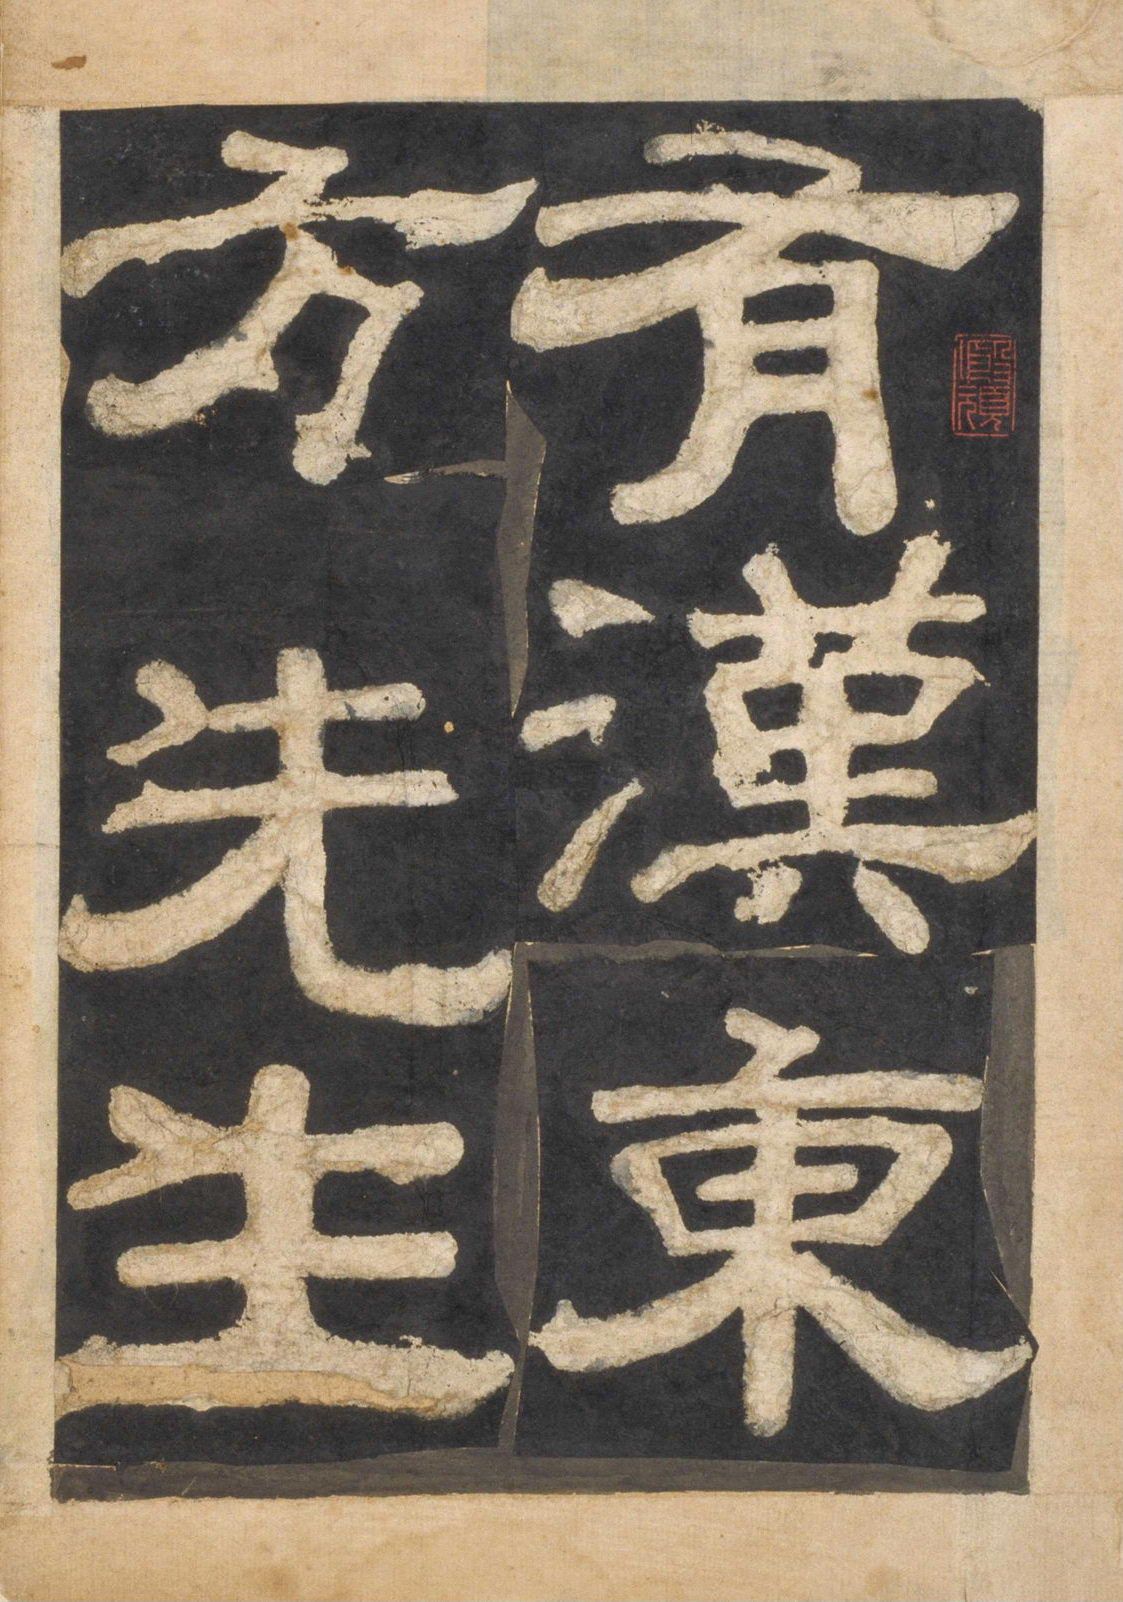 有漢東
方先生